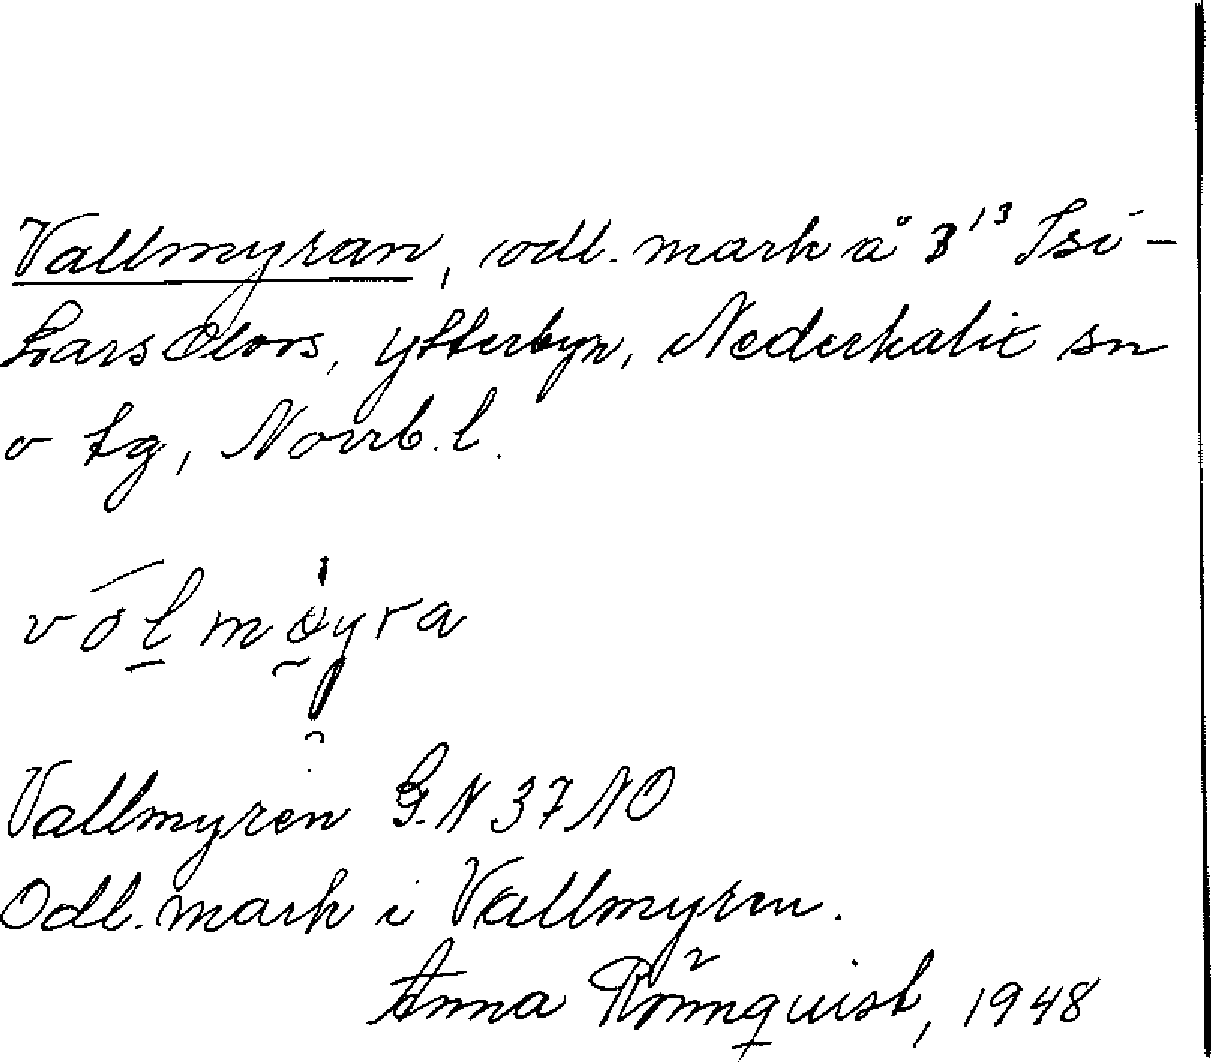 Vallmyran, odl. mark å 3¹³ Isi-
Lars Olors, Ytterbyn, Nederkalix sn
o tg, Norrb. l.
Vallmyren G.N 37 NO
Odl. mark i Vallmyren.
Anna Rönnquist, 1948